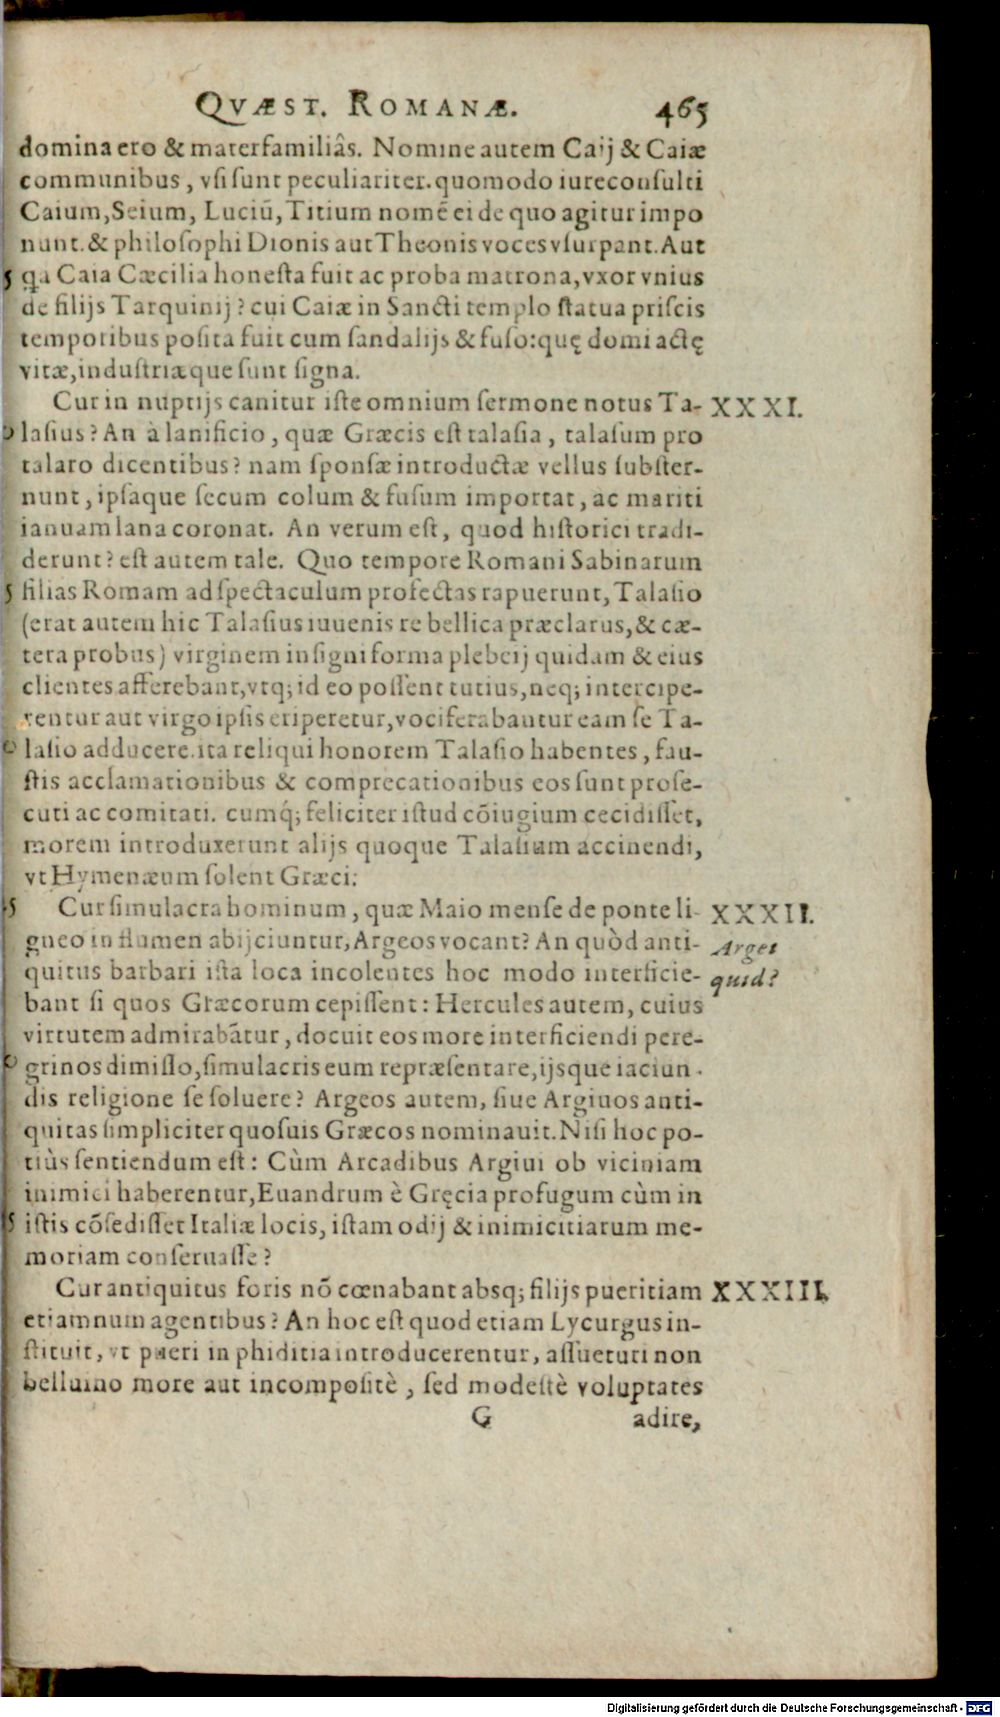 QVÆST. ROMANÆ. 465
domina ero & materfamiliâs. Nomine autem Caij & Caiæ
communibus, vsi sunt peculiariter. quomodo iureconsulti
Caium, Seium, Luciū, Titium nomē ei de quo agitur impo
nunt. & philosophi Dionis aut Theonis voces vsurpant. Aut
5 qa Caia Cæcilia honesta fuit ac proba matrona, vxor vnius
de filijs Tarquinij? cui Caiæ in Sancti templo statua priscis
temporibus posita fuit cum sandalijs & fuso: quę domi actę
vitæ, industriæque sunt signa.
Cur in nuptijs canitur iste omnium sermone notus Ta- XXXI.
lasius? An à lanificio, quæ Græcis est talasia, talasum pro
talaro dicentibus? nam sponsæ introductæ vellus subster-
nunt, ipsaque secum colum & fusum importat, ac mariti
ianuam lana coronat. An verum est, quod historici tradi-
derunt? est autem tale. Quo tempore Romani Sabinarum
5 filias Romam ad spectaculum profectas rapuerunt, Talasio
(erat autem hic Talasius iuuenis re bellica præclarus, & cæ-
tera probus) virginem insigni forma plebeij quidam & eius
clientes afferebant, vtq; id eo possent tutius, neq; intercipe-
rentur aut virgo ipsis eriperetur, vociferabantur eam se Ta-
0 lasio adducere. ita reliqui honorem Talasio habentes, fau-
stis acclamationibus & comprecationibus eos sunt prose-
cuti ac comitati. cumq́; feliciter istud cōiugium cecidisset,
morem introduxerunt alijs quoque Talasium accinendi,
vt Hymenæum solent Græci.
5 Cur simulacra hominum, quæ Maio mense de ponte li- XXXII.
gneo in flumen abijciuntur, Argeos vocant? An quòd anti- Argei
quitus barbari ista loca incolentes hoc modo interficie- quid?
bant si quos Græcorum cepissent: Hercules autem, cuius
virtutem admirabātur, docuit eos more interficiendi pere-
0 grinos dimisso, simulacris eum repræsentare, ijsque iaciun-
dis religione se soluere? Argeos autem, siue Argiuos anti-
quitas simpliciter quosuis Græcos nominauit. Nisi hoc po-
tiùs sentiendum est: Cùm Arcadibus Argiui ob viciniam
inimici haberentur, Euandrum è Gręcia profugum cùm in
5 istis cōsedisset Italiæ locis, istam odij & inimicitiarum me-
moriam conseruasse?
Cur antiquitus foris nō cœnabant absq; filijs pueritiam XXXIII.
etiamnum agentibus? An hoc est quod etiam Lycurgus in-
stituit, vt pueri in phiditia introducerentur, assueturi non
belluino more aut incompositè, sed modestè voluptates
G adire,
Digitalisierung gefördert durch die Deutsche Forschungsgemeinschaft - DFG